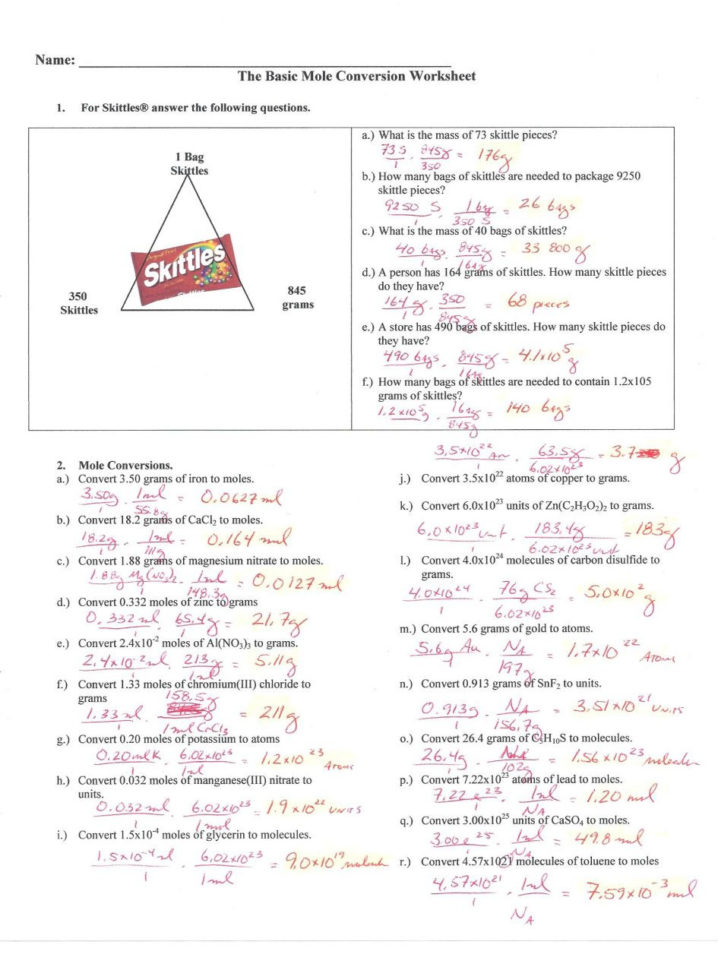 Name:
The Basic Mole Conversion Worksheet
1. For Skittles® answer the following questions.
1 Bag
Skittles
Skittles
350
Skittles
845
grams
a.) What is the mass of 73 skittle pieces?
73 S / 1 · 845g / 350 = 176g
b.) How many bags of skittles are needed to package 9250
skittle pieces?
9250 S / 1 · 1 bag / 350 S = 26 bags
c.) What is the mass of 40 bags of skittles?
40 bags / 1 · 845g / 1 bag = 33 800 g
d.) A person has 164 grams of skittles. How many skittle pieces
do they have?
164 g / 1 · 350 / 845g = 68 pieces
e.) A store has 490 bags of skittles. How many skittle pieces do
they have?
490 bags / 1 · 845g / 1 bag = 4.1x10⁵ g
f.) How many bags of skittles are needed to contain 1.2x105
grams of skittles?
1.2x10⁵g / 1 · 1 bag / 845g = 140 bags
2. Mole Conversions.
a.) Convert 3.50 grams of iron to moles.
3.50g · 1ml / 55.8g = 0.0627 ml
b.) Convert 18.2 grams of CaCl₂ to moles.
18.2g / 1 · 1ml / 111g = 0.164 mol
c.) Convert 1.88 grams of magnesium nitrate to moles.
1.88g Mg(NO₃)₂ · 1ml / 148.3g = 0.0127 ml
d.) Convert 0.332 moles of zinc to grams
0.332 ml / 1 · 65.4g = 21.7g
e.) Convert 2.4x10⁻² moles of Al(NO₃)₃ to grams.
2.4x10⁻² ml / 1 · 213g / 1ml = 5.11g
f.) Convert 1.33 moles of chromium(III) chloride to
grams
1.33 ml / 1 · 158.5g / 1ml CrCl₃ = 211g
g.) Convert 0.20 moles of potassium to atoms
0.20 ml K / 1 · 6.02x10²³ / 1ml = 1.2x10²³ Atoms
h.) Convert 0.032 moles of manganese(III) nitrate to
units.
0.032 ml / 1 · 6.02x10²³ / 1 mol = 1.9x10²² units
i.) Convert 1.5x10⁻⁴ moles of glycerin to molecules.
1.5x10⁻⁴ ml / 1 · 6.02x10²³ / 1ml = 9.0x10¹⁹ molecules
3.5x10²² Atm / 1 · 63.5g / 6.02x10²³ = 3.7 g
j.) Convert 3.5x10²² atoms of copper to grams.
k.) Convert 6.0x10²³ units of Zn(C₂H₃O₂)₂ to grams.
6.0x10²³ unit / 1 · 183.4g / 6.02x10²³ unit = 183g
l.) Convert 4.0x10²⁴ molecules of carbon disulfide to
grams.
4.0x10²⁴ / 1 · 76g CS₂ / 6.02x10²³ = 5.0x10² g
m.) Convert 5.6 grams of gold to atoms.
5.6g Au / 1 · NA / 197g = 1.7x10²² Atoms
n.) Convert 0.913 grams of SnF₂ to units.
0.913g / 1 · NA / 156.7g = 3.51x10²¹ units
o.) Convert 26.4 grams of C₅H₁₀S to molecules.
26.4g / 1 · NA / 102g = 1.56x10²³ molecules
p.) Convert 7.22x10²³ atoms of lead to moles.
7.22 e²³ / 1 · 1ml / NA = 1.20 mol
q.) Convert 3.00x10²⁵ units of CaSO₄ to moles.
3.00 e²⁵ / 1 · 1ml / NA = 49.8 ml
r.) Convert 4.57x1021 molecules of toluene to moles
4.57x10²¹ / 1 · 1ml / NA = 7.59x10⁻³ ml